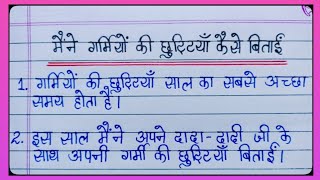 मैंने गर्मियों की छुट्टियाँ कैसे बिताईं
1. गर्मियों की छुट्टियाँ साल का सबसे अच्छा
समय होता है।
2. इस साल मैंने अपने दादा-दादी जी के
साथ अपनी गर्मी की छुट्टियाँ बिताईं।